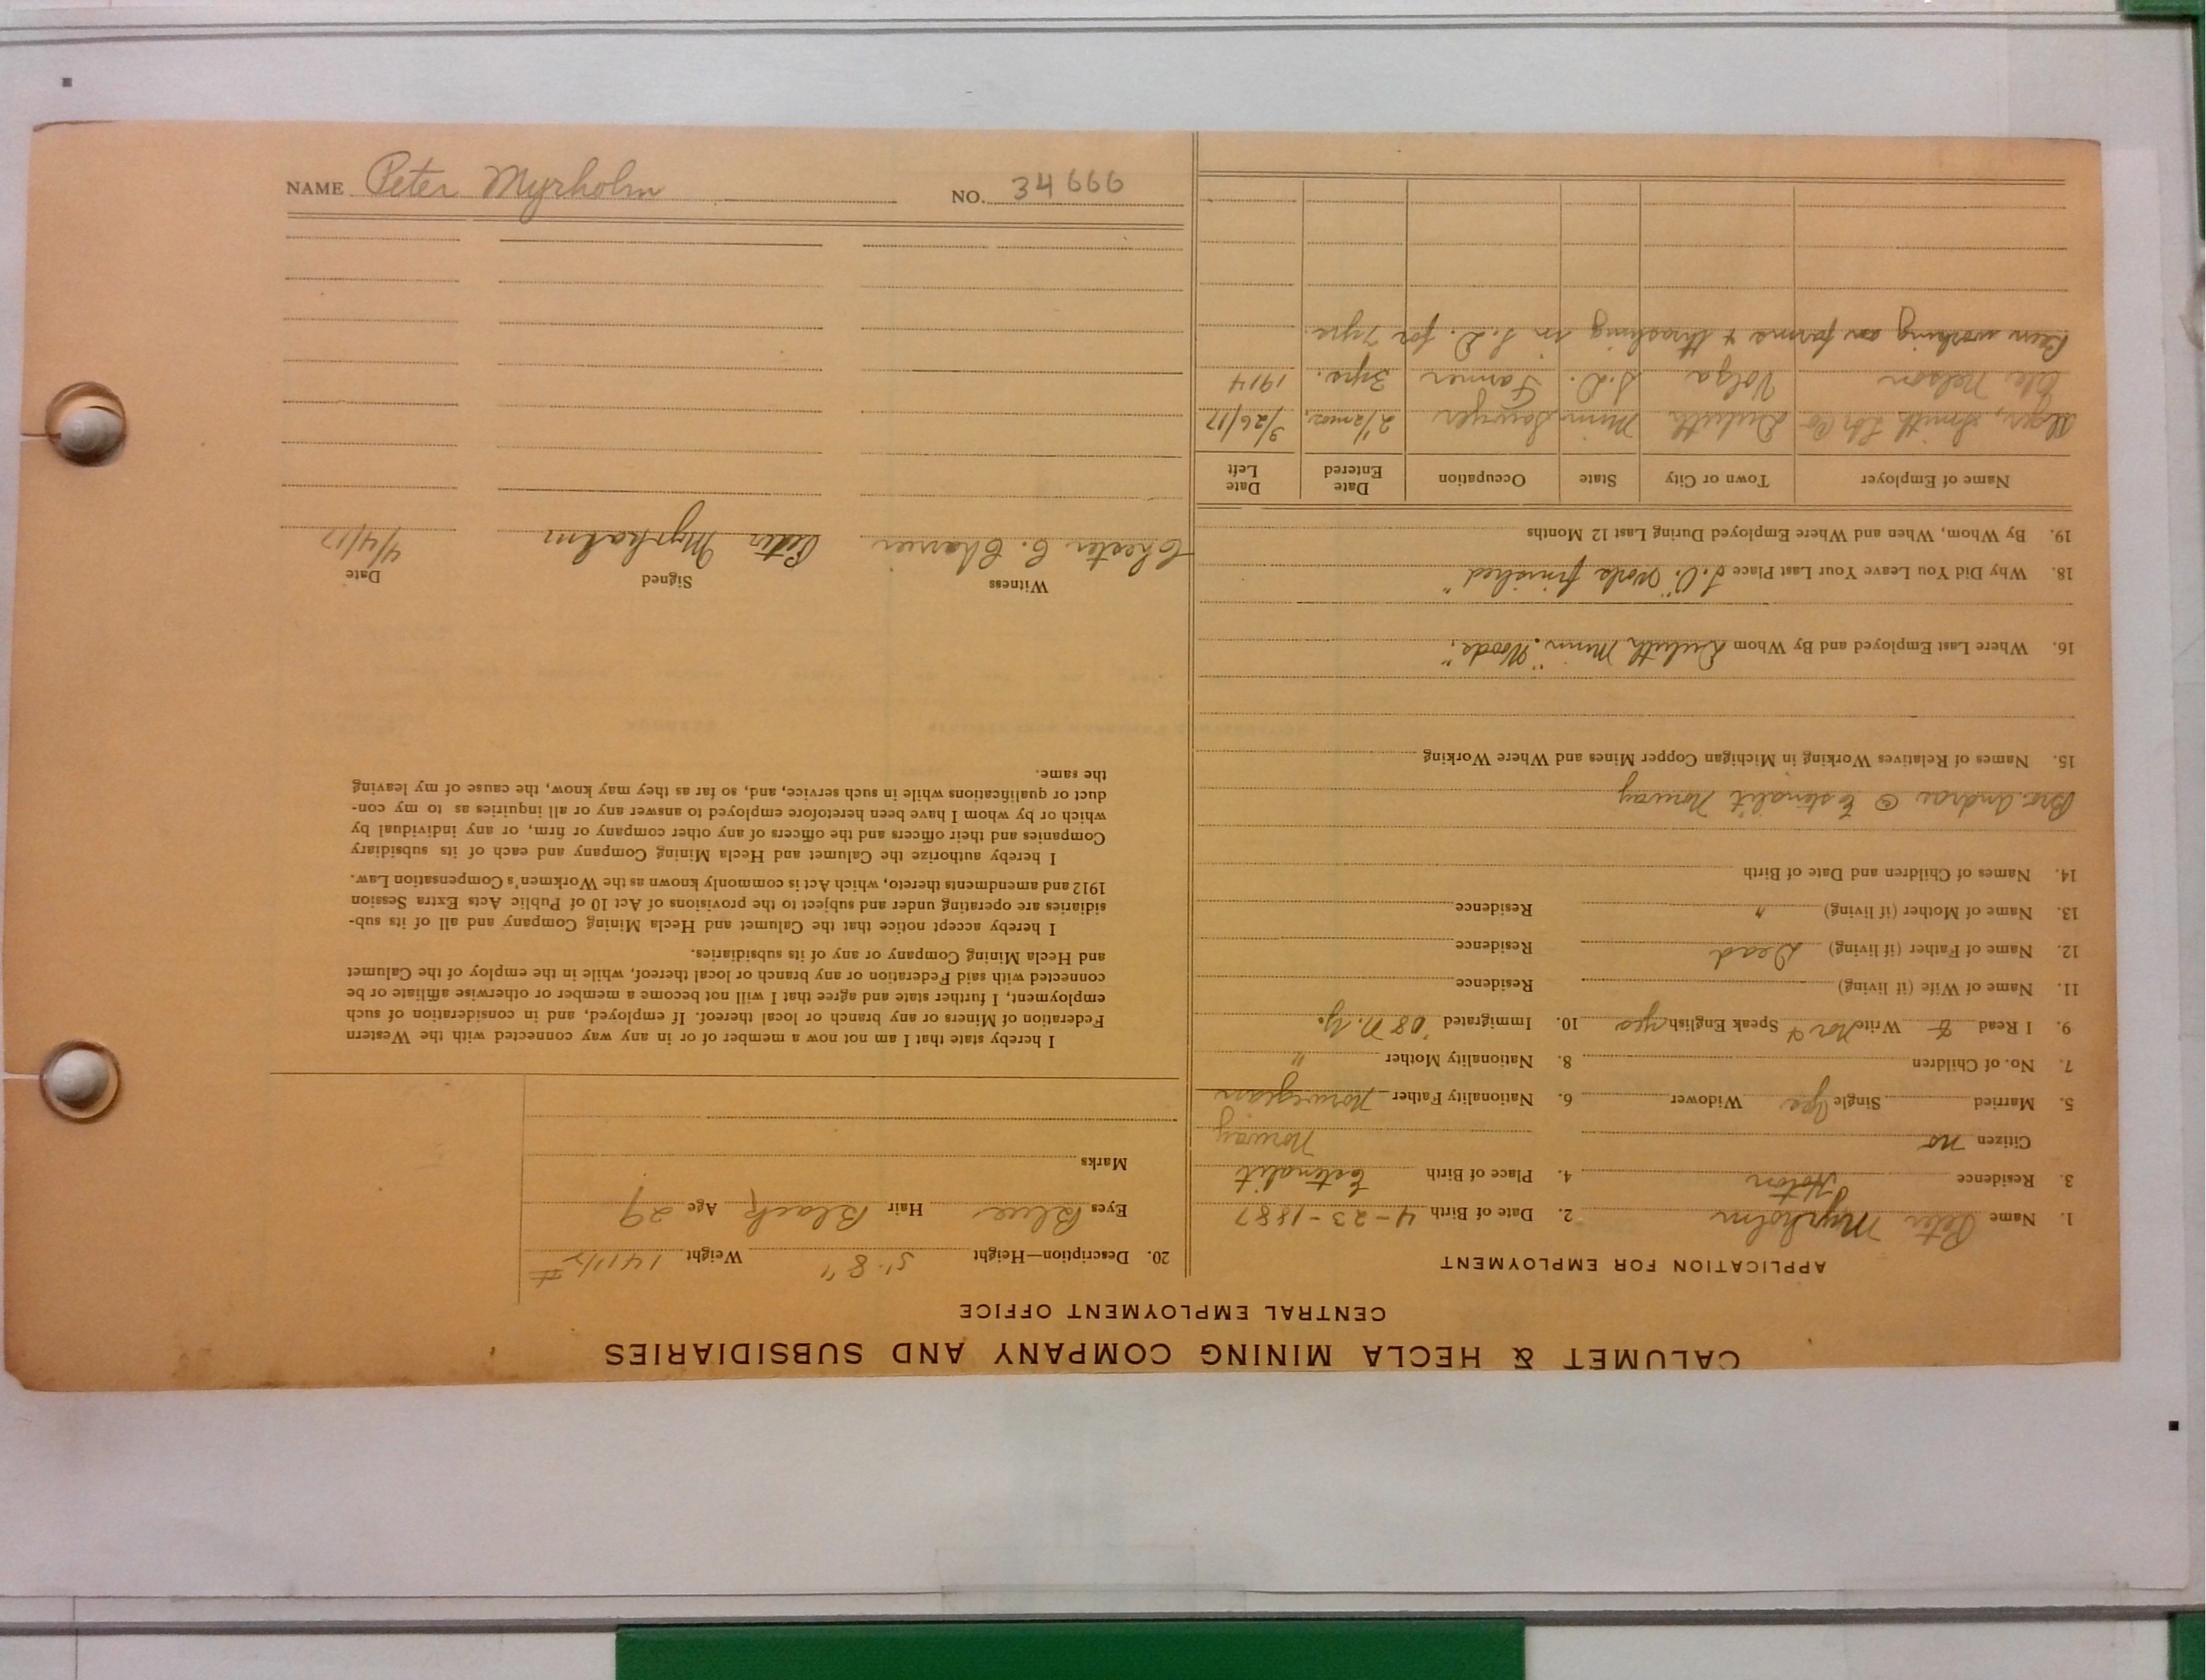 NAME Peter Myrholm NO. 34666
CALUMET & HECLA MINING COMPANY AND SUBSIDIARIES
CENTRAL EMPLOYMENT OFFICE
APPLICATION FOR EMPLOYMENT
1. Name Peter Myrholm 2. Date of Birth 4-23-1887
3. Residence Hoton 4. Place of Birth
Citizen no Norway
5. Married Single Yes Widower 6. Nationality Father Norwegian
7. No. of Children 8. Nationality Mother "
9. I Read & Write Nor & Speak English yes 10. Immigrated '08 N.Y.
11. Name of Wife (if living) Residence
12. Name of Father (if living) Dead Residence
13. Name of Mother (if living) " Residence
14. Names of Children and Date of Birth
Bro. Andras @ Norway
15. Names of Relatives Working in Michigan Copper Mines and Where Working
16. Where Last Employed and By Whom Duluth Minn. "Woods."
18. Why Did You Leave Your Last Place "Work finished"
19. By Whom, When and Where Employed During Last 12 Months
Name of Employer Town or City State Occupation Date Entered Date Left
Alger, Smith Lbr Co Duluth Minn Sawyer 2 1/2 mos. 3/26/17
Ole Nelson Volga S.D. Farmer 3 yrs. 1914
Been working on farms & thrashing in S.D. for 7 yrs.
20. Description—Height 5' 8" Weight 141 1/2 #
Eyes Blue Hair Black Age 29
Marks
I hereby state that I am not now a member of or in any way connected with the Western
Federation of Miners or any branch or local thereof. If employed, and in consideration of such
employment, I further state and agree that I will not become a member or otherwise affiliate or be
connected with said Federation or any branch or local thereof, while in the employ of the Calumet
and Hecla Mining Company or any of its subsidiaries.
I hereby accept notice that the Calumet and Hecla Mining Company and all of its sub-
sidiaries are operating under and subject to the provisions of Act 10 of Public Acts Extra Session
1912 and amendments thereto, which Act is commonly known as the Workmen's Compensation Law.
I hereby authorize the Calumet and Hecla Mining Company and each of its subsidiary
Companies and their officers and the officers of any other company or firm, or any individual by
which or by whom I have been heretofore employed to answer any or all inquiries as to my con-
duct or qualifications while in such service, and, so far as they may know, the cause of my leaving
the same.
Witness Signed Date
Chester C. Peter Myrholm 4/4/17